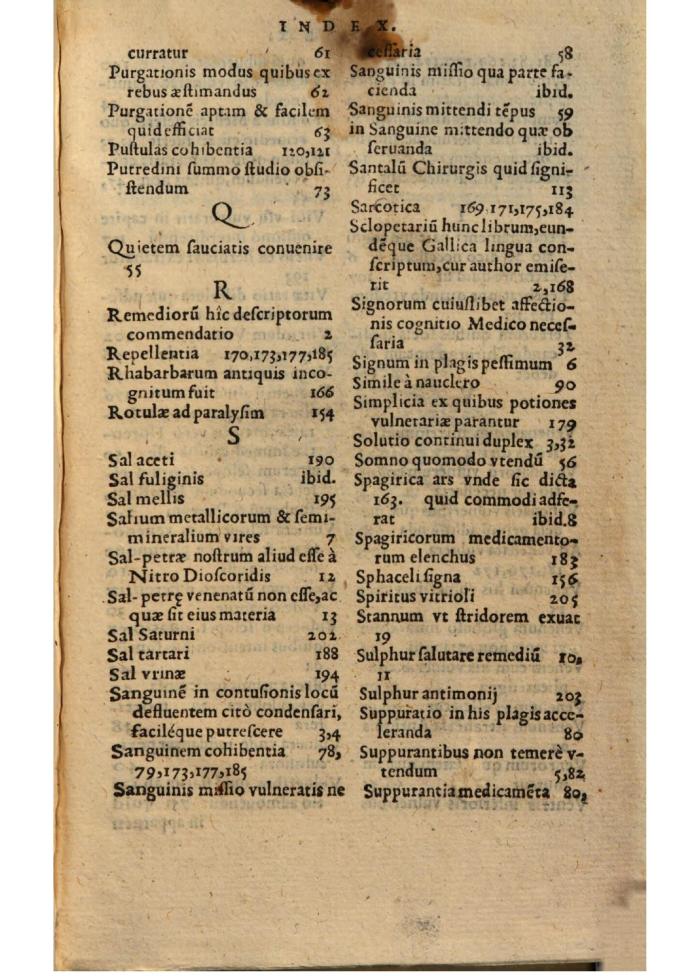 INDEX.
curratur 61
Purgationis modus quibus ex
rebus æſtimandus 62
Purgationē aptam & facilem
quid efficiat 63
Puſtulas cohibentia 120,121
Putredini ſummo ſtudio obſi-
ſtendum 73
Q
Quietem ſauciatis conuenire
55
R
Remediorū hîc deſcriptorum
commendatio 2
Repellentia 170,173,177,185
Rhabarbarum antiquis inco-
gnitum fuit 166
Rotulæ ad paralyſim 154
S
Sal aceti 190
Sal fuliginis ibid.
Sal mellis 195
Salium metallicorum & ſemi-
mineralium vires 7
Sal-petræ noſtrum aliud eſſe à
Nitro Dioſcoridis 12
Sal-petrę venenatū non eſſe,ac
quæ ſit eius materia 13
Sal Saturni 202
Sal tartari 188
Sal vrinæ 194
Sanguinē in contuſionis locū
defluentem citò condenſari,
faciléque putreſcere 3,4
Sanguinem cohibentia 78,
79,173,177,185
Sanguinis miſſio vulneratis ne
ceſſaria 58
Sanguinis miſſio qua parte fa-
cienda ibid.
Sanguinis mittendi tēpus 59
in Sanguine mittendo quæ ob
ſeruanda ibid.
Santalū Chirurgis quid ſigni-
ficet 113
Sarcotica 169.171,175,184
Sclopetariū hunc librum,eun-
dēque Gallica lingua con-
ſcriptum,cur author emiſe-
rit 2,168
Signorum cuiuſlibet affectio-
nis cognitio Medico neceſ-
ſaria 32
Signum in plagis peſſimum 6
Simile à nauclero 90
Simplicia ex quibus potiones
vulnerariæ parantur 179
Solutio continui duplex 3,32
Somno quomodo vtendū 56
Spagirica ars vnde ſic dicta
163. quid commodi adfe-
rat ibid.8
Spagiricorum medicamento-
rum elenchus 183
Sphaceli ſigna 156
Spiritus vitrioli 205
Stannum vt ſtridorem exuat
19
Sulphur ſalutare remediū 10,
11
Sulphur antimonij 203
Suppuratio in his plagis acce-
leranda 80
Suppurantibus non temerè v-
tendum 5,82
Suppurantia medicamēta 80,